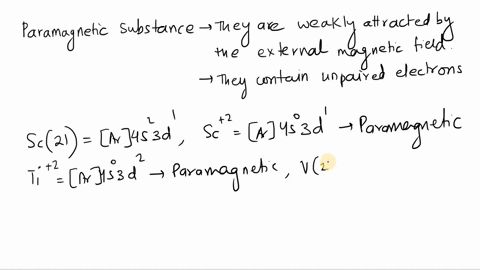 Paramagnetic Substance → They are weakly attracted by
the external magnetic field.
→ They contain unpaired electrons
Sc(21) = [Ar]4s²3d¹, Sc⁺² = [Ar]4s⁰3d¹ → Paramagnetic
Ti⁺² = [Ar]4s⁰3d² → Paramagnetic, V(2